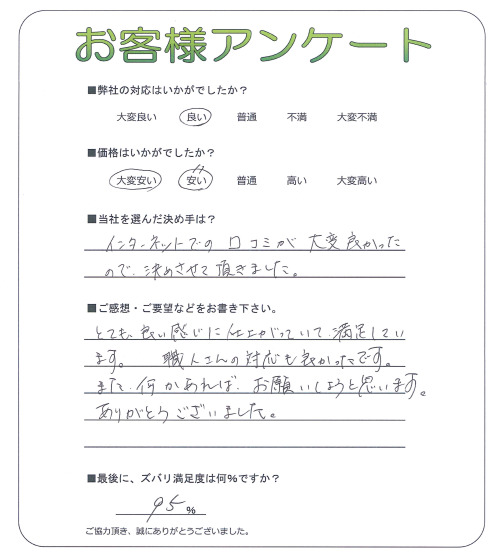 お客様アンケート
■弊社の対応はいかがでしたか？
大変良い　良い　普通　不満　大変不満
■価格はいかがでしたか？
大変安い　安い　普通　高い　大変高い
■当社を選んだ決め手は？
インターネットでの口コミが大変良かった
ので、決めさせて頂きました。
■ご感想・ご要望などをお書き下さい。
とても良い感じに仕上がっていて満足してい
ます。　職人さんの対応も良かったです。
また、何かあれば、お願いしようと思います。
ありがとうございました。
■最後に、ズバリ満足度は何%ですか？
95 %
ご協力頂き、誠にありがとうございました。